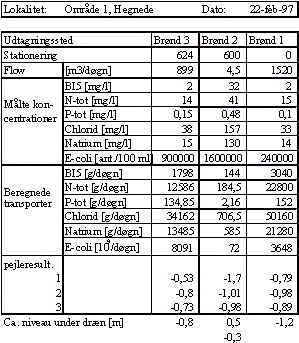 Lokalitet: Område 1, Hegnede Dato: 22-feb-97
Udtagningssted Brønd 3 Brønd 2 Brønd 1
Stationering 624 600 0
Flow [m3/døgn] 899 4,5 1520
BI5 [mg/l] 2 32 2
Målte kon- N-tot [mg/l] 14 41 15
centrationer P-tot [mg/l] 0,15 0,48 0,1
Chlorid [mg/l] 38 157 33
Natrium [mg/l] 15 130 14
E-coli [ant./100 ml] 900000 1600000 240000
BI5 [g/døgn] 1798 144 3040
Beregnede N-tot [g/døgn] 12586 184,5 22800
transporter P-tot [g/døgn] 134,85 2,16 152
Chlorid [g/døgn] 34162 706,5 50160
Natrium [g/døgn] 13485 585 21280
E-coli [10⁹/døgn] 8091 72 3648
pejleresult.
1 -0,53 -1,7 -0,79
2 -0,8 -1,01 -0,98
3 -0,73 -0,98 -0,89
Ca. niveau under dræn [m] -0,8 0,5 -1,2
-0,3